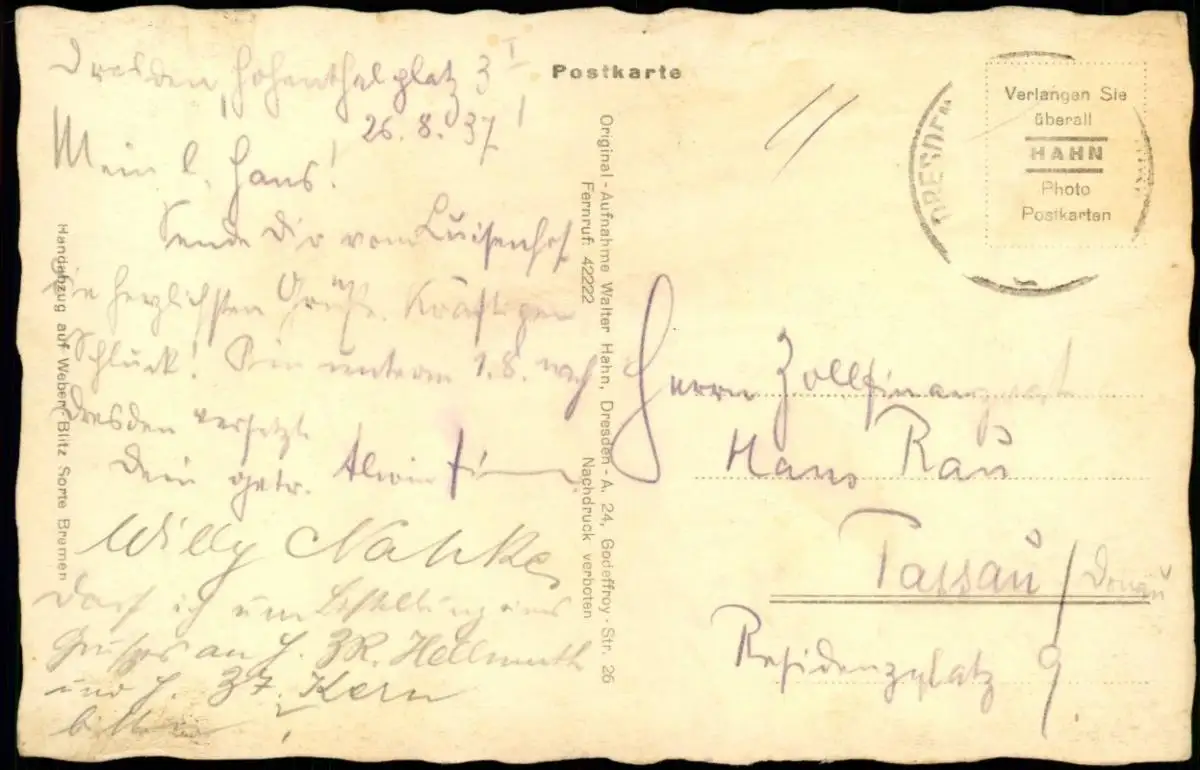 Dresden, Hohenthalplatz 3 I
26. 8. 37!
Mein l. Hans!
Sende Dir vom Luisenhof
die herzlichsten Grüße. Kräftigen
Schluck! Bin unterm 1.8. nach
Dresden versetzt
Dein getr. Alwin
Willy Nahke
Darf ich um Bestellung eines
Grußes an H. ZR. Hellmuth
und H. ZJ. Kern
bitten!
Handabzug auf Weber-Blitz Sorte Bremen
Postkarte
Original-Aufnahme Walter Hahn, Dresden-A. 24, Godeffroy-Str. 26
Fernruf: 42222
Nachdruck verboten
DRESDEN
Verlangen Sie
überall
HAHN
Photo
Postkarten
Herrn Zollfinanzrat
Hans Rau
Passau/Donau
Residenzplatz 9